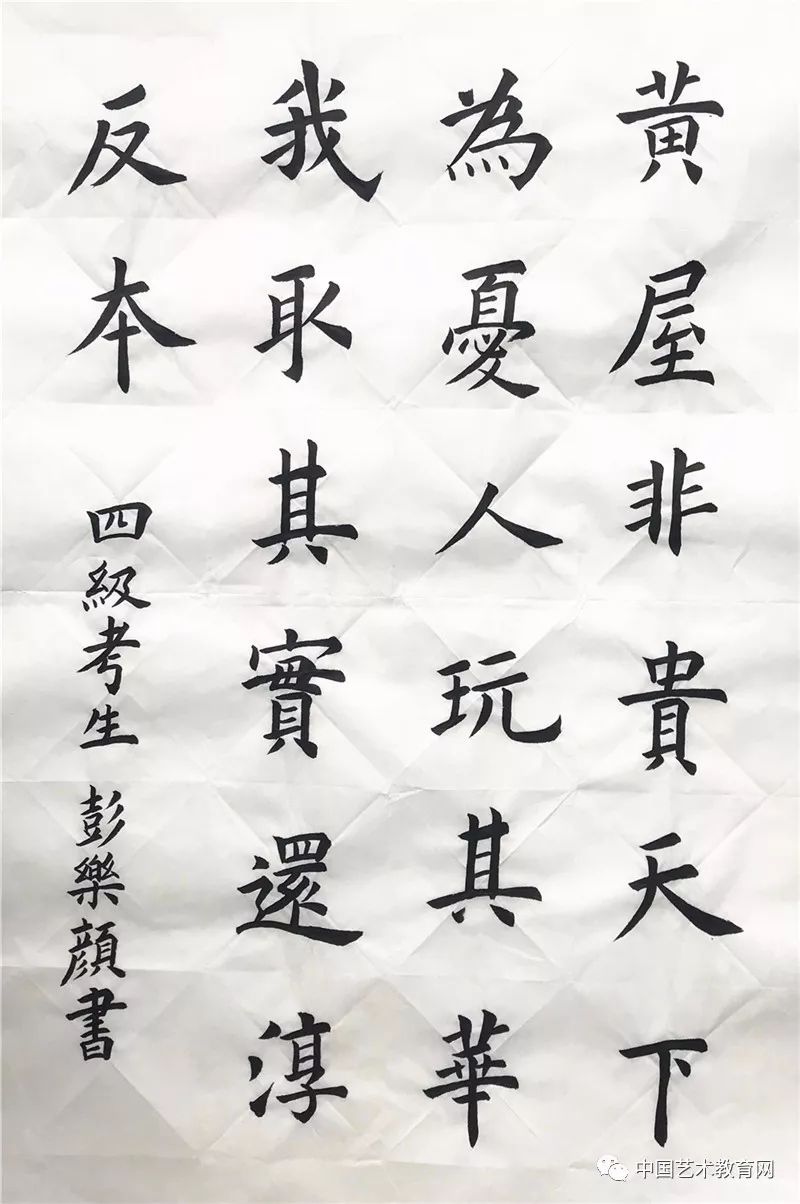 黃屋非貴天下
為憂人玩其華
我取其實還淳
反本
四級考生 彭樂顏書
中国艺术教育网